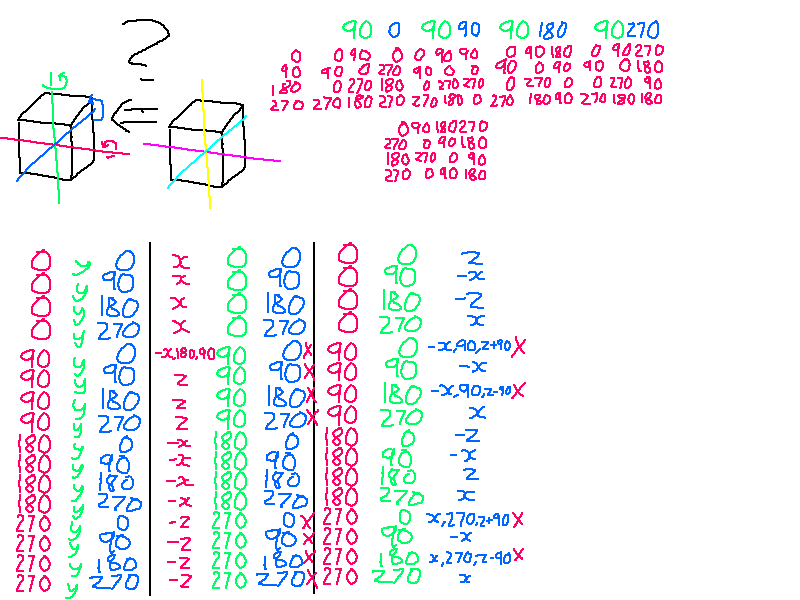 ?
90 0 90 90 90 180 90 270
0 0 90 0 0 90 90 0 90 180 0 90 270
90 90 0 270 90 0 0 90 0 90 90 0 180
180 0 270 180 0 270 270 0 270 0 0 270 90
270 270 180 270 270 180 0 270 180 90 270 180 180
0 90 180 270
270 0 90 180
180 270 0 90
270 0 90 180
0 y 0 x 0 0 0 0 z
0 y 90 x 0 90 0 90 -x
0 y 180 x 0 180 0 180 -z
0 y 270 x 0 270 0 270 x
90 y 0 -x,180,90 90 0 x 90 0 -x,90,z+90 x
90 y 90 z 90 90 x 90 90 -x
90 y 180 z 90 180 x 90 180 -x,90,z-90 x
90 y 270 z 90 270 x 90 270 x
180 y 0 -x 180 0 180 0 -z
180 y 90 -x 180 90 180 90 -x
180 y 180 -x 180 180 180 180 z
180 y 270 -x 180 270 180 270 x
270 y 0 -z 270 0 x 270 0 x,270,z+90 x
270 y 90 -z 270 90 x 270 90 -x
270 y 180 -z 270 180 x 270 180 x,270,z-90 x
270 y 270 -z 270 270 x 270 270 x